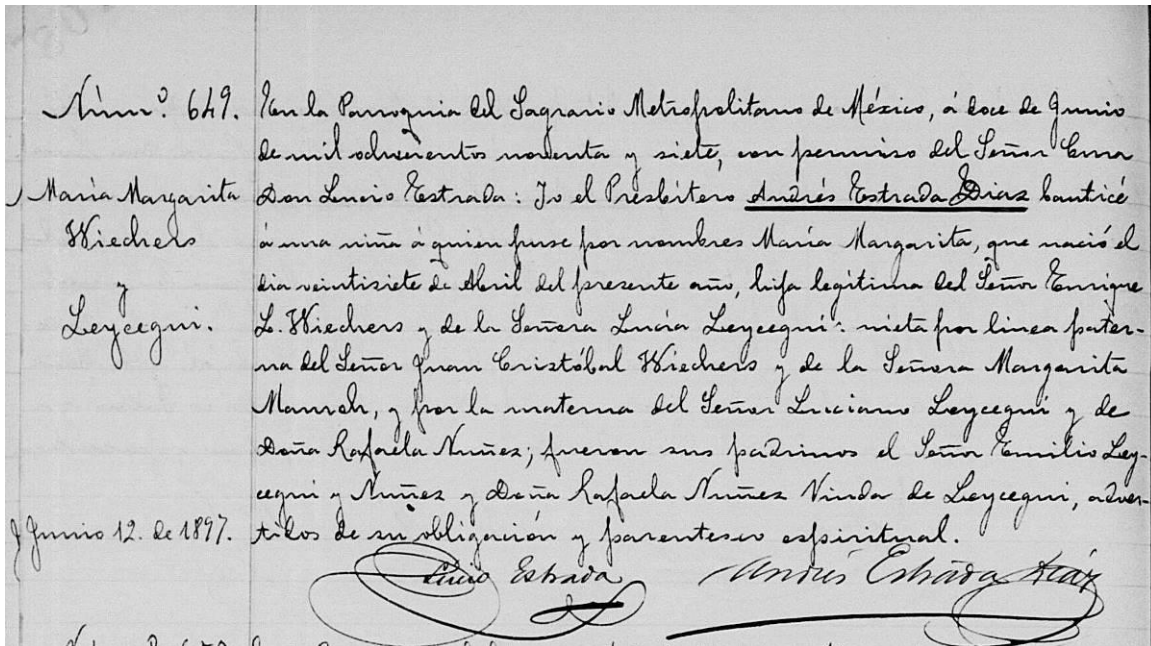 Núm.º 649.
María Margarita
Wiechers
y
Leycegui.
Junio 12. de 1897.
En la Parroquia del Sagrario Metropolitano de México, á doce de Junio
de mil ochocientos noventa y siete, con permiso del Señor Cura
Don Lucio Estrada: Yo el Presbítero Andrés Estrada Diaz bauticé
á una niña á quien puse por nombres María Margarita, que nació el
dia veintisiete de Abril del presente año, hija legítima del Señor Enrique
L. Wiechers y de la Señora Lucía Leycegui: nieta por linea pater-
na del Señor Juan Cristóbal Wiechers y de la Señora Margarita
y por la materna del Señor Luciano Leycegui y de
Doña Rafaela Nuñez; fueron sus padrinos el Señor Emilio Ley-
cegui y Nuñez y Doña Rafaela Nuñez Viuda de Leycegui, adver-
tidos de su obligación y parentesco espiritual.
Lucio Estrada Andrés Estrada Diaz